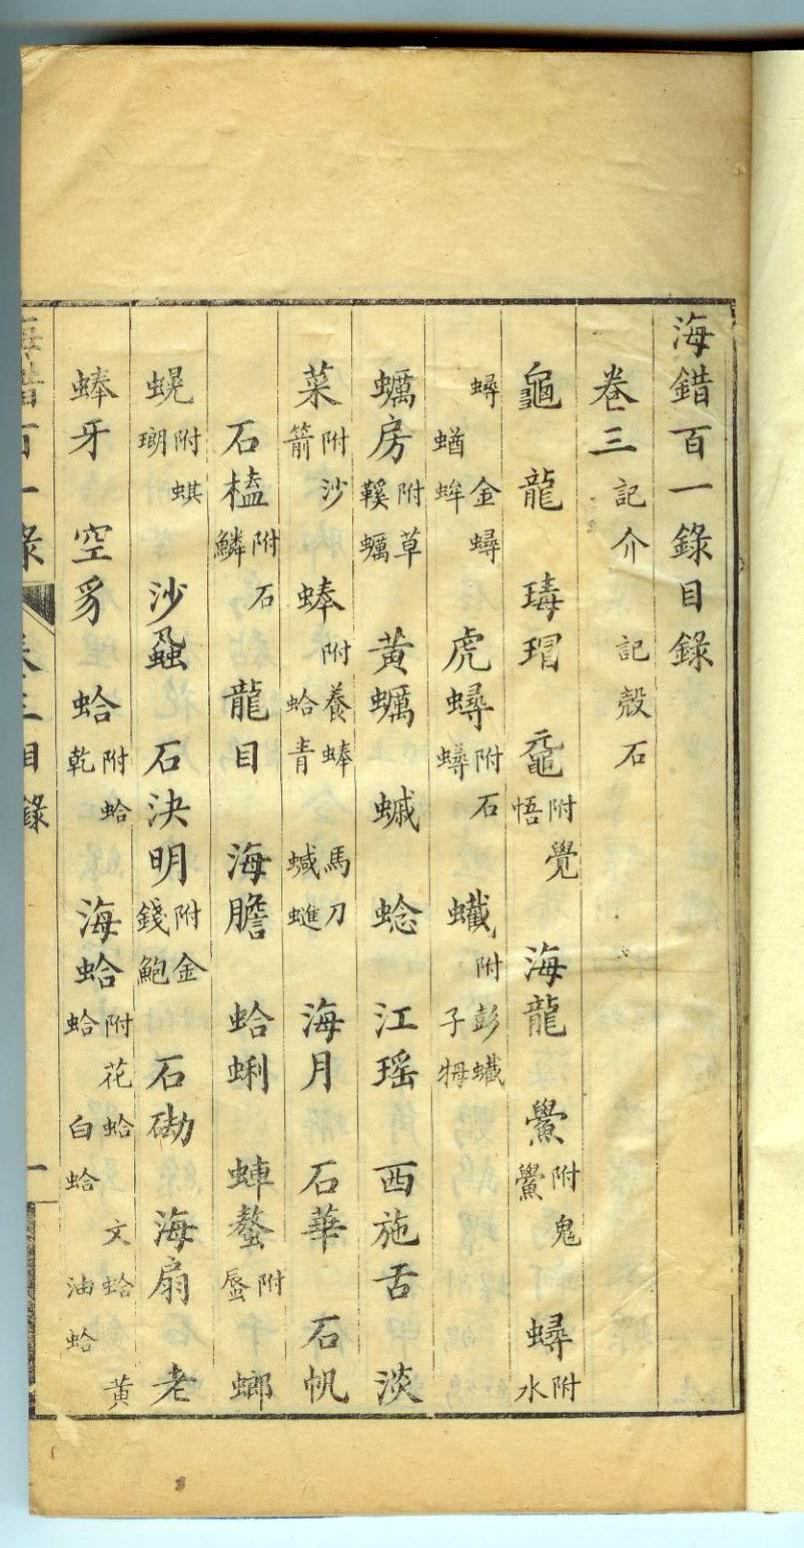 海錯百一錄目錄
卷三 記介 記殼石
龜 龍 瑇瑁 黿 附覺悟 海龍 鱟 附鬼鱟 蟳 附水
蟳 金蟳 蝤蛑 虎蟳 附石蟳 蠘 附彭蠘 子
蠣房 附草鞵蠣 黃蠣 江瑤 西施舌 淡
菜 附沙箭 蜯 附養蜯蛤青 馬刀 海月 石華 石帆
石榼 附石鱗 龍目 海膽 蛤蜊 蛼螯 附蜃 螂
附蜞 沙蝨 石決明 附金錢鮑 海扇 老
蜯牙 空豸 蛤 附蛤乾 海蛤 附花蛤蛤 白蛤 文蛤 油蛤 黃
海錯百一錄 卷三目錄 一